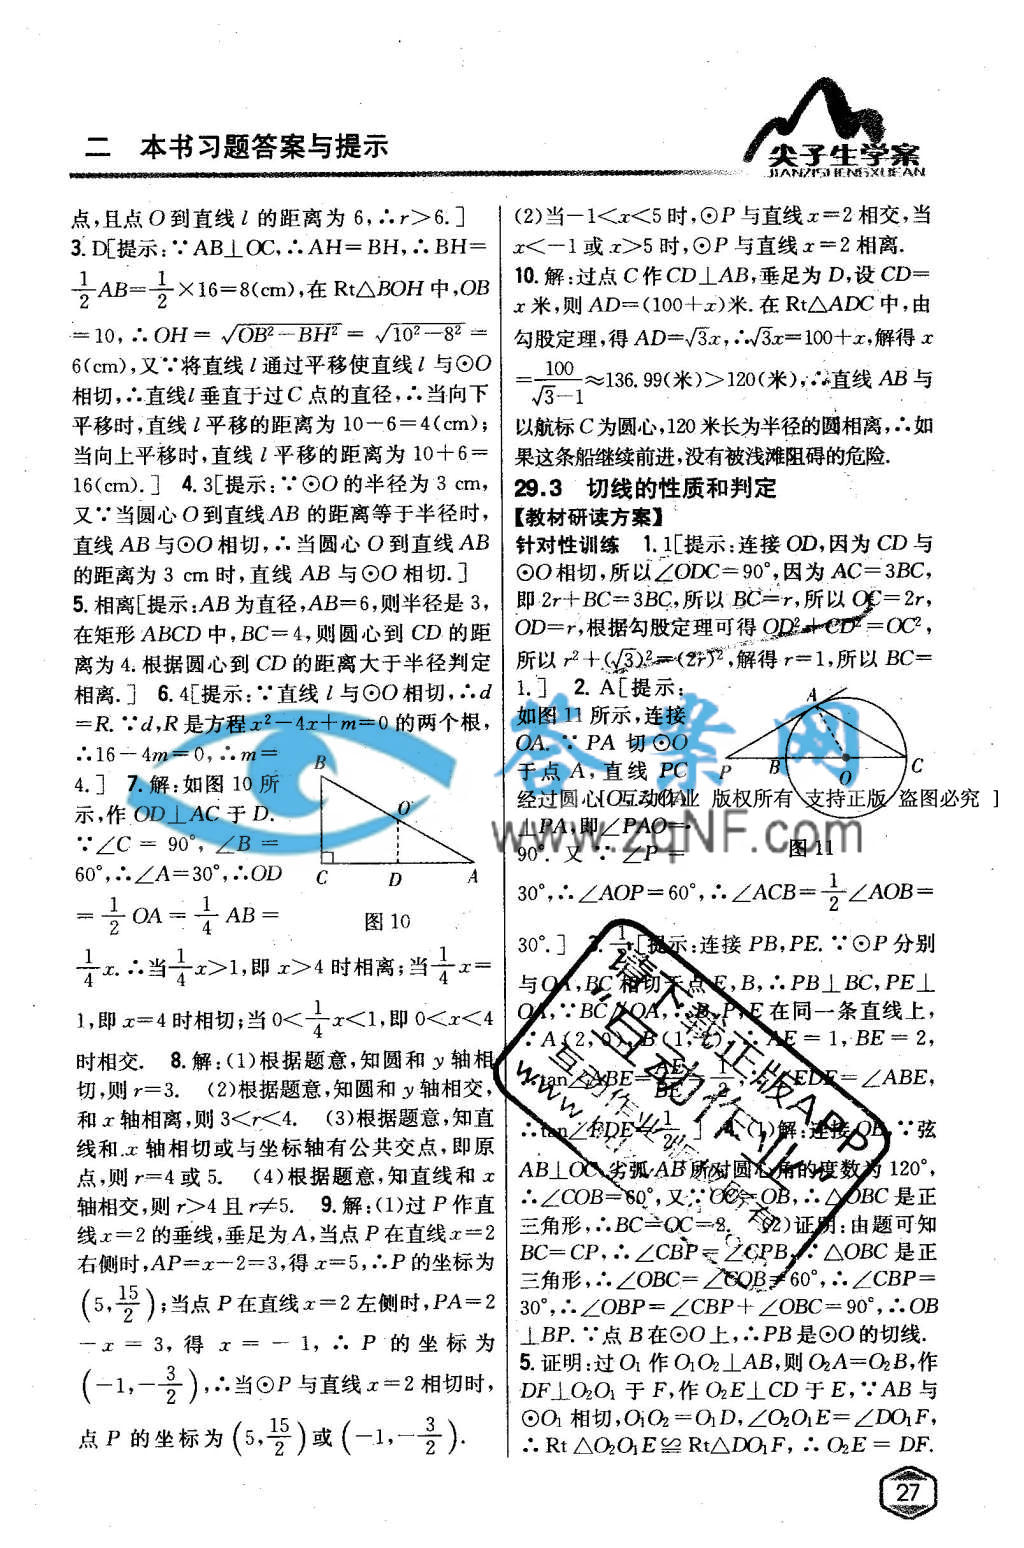 二 本书习题答案与提示
尖子生学案
JIANZISHENGXUEAN
点,且点 O 到直线 l 的距离为 6,∴r>6.]
3. D[提示:∵AB⊥OC,∴AH=BH,∴BH=
1/2 AB=1/2×16=8(cm),在 Rt△BOH 中,OB
=10,∴OH=√(OB²-BH²)=√(10²-8²)=
6(cm),又∵将直线 l 通过平移使直线 l 与⊙O
相切,∴直线 l 垂直于过 C 点的直径,∴当向下
平移时,直线 l 平移的距离为 10-6=4(cm);
当向上平移时,直线 l 平移的距离为 10+6=
16(cm).] 4. 3[提示:∵⊙O 的半径为 3 cm,
又∵当圆心 O 到直线 AB 的距离等于半径时,
直线 AB 与⊙O 相切,∴当圆心 O 到直线 AB
的距离为 3 cm 时,直线 AB 与⊙O 相切.]
5. 相离[提示:AB 为直径,AB=6,则半径是 3,
在矩形 ABCD 中,BC=4,则圆心到 CD 的距
离为 4.根据圆心到 CD 的距离大于半径判定
相离.] 6. 4[提示:∵直线 l 与⊙O 相切,∴d
=R.∵d,R 是方程 x²-4x+m=0 的两个根,
∴16-4m=0,∴m=
4.] 7. 解:如图 10 所
示,作 OD⊥AC 于 D.
∵∠C = 90°,∠B =
60°,∴∠A=30°,∴OD
=1/2 OA=1/4 AB=
B
O
C D A
图 10
1/4 x.∴当 1/4 x>1,即 x>4 时相离;当 1/4 x=
1,即 x=4 时相切;当 0<1/4 x<1,即 0<x<4
时相交. 8. 解:(1)根据题意,知圆和 y 轴相
切,则 r=3. (2)根据题意,知圆和 y 轴相交,
和 x 轴相离,则 3<r<4. (3)根据题意,知直
线和 x 轴相切或与坐标轴有公共交点,即原
点,则 r=4 或 5. (4)根据题意,知直线和 x
轴相交,则 r>4 且 r≠5. 9. 解:(1)过 P 作直
线 x=2 的垂线,垂足为 A,当点 P 在直线 x=2
右侧时,AP=x-2=3,得 x=5,∴P 的坐标为
(5,15/2);当点 P 在直线 x=2 左侧时,PA=2
-x = 3, 得 x = -1, ∴ P 的坐标为
(-1,-3/2),∴当⊙P 与直线 x=2 相切时,
点 P 的坐标为(5,15/2)或(-1,-3/2).
(2)当-1<x<5 时,⊙P 与直线 x=2 相交,当
x<-1 或 x>5 时,⊙P 与直线 x=2 相离.
10. 解:过点 C 作 CD⊥AB,垂足为 D,设 CD=
x 米,则 AD=(100+x)米.在 Rt△ADC 中,由
勾股定理,得 AD=√3x,∴√3x=100+x,解得 x
=100/(√3-1)≈136.99(米)>120(米),∴直线 AB 与
以航标 C 为圆心,120 米长为半径的圆相离,∴如
果这条船继续前进,没有被浅滩阻碍的危险.
29.3 切线的性质和判定
【教材研读方案】
针对性训练 1. 1[提示:连接 OD,因为 CD 与
⊙O 相切,所以∠ODC=90°,因为 AC=3BC,
即 2r+BC=3BC,所以 BC=r,所以 OC=2r,
OD=r,根据勾股定理可得 OD²+CD²=OC²,
所以 r²+(√3)²=(2r)²,解得 r=1,所以 BC=
1.] 2. A[提示:
如图 11 所示,连接
OA.∵PA 切⊙O
于点 A,直线 PC
经过圆心 O,∴OA
互动作业 版权所有 支持正版 盗图必究 ]
⊥PA,即∠PAO=
90°.又∵∠P=
A
P B O C
图 11
30°,∴∠AOP=60°,∴∠ACB=1/2∠AOB=
30°.] 3. 1/2[提示:连接 PB,PE.∵⊙P 分别
与 OA,BC 相切于点 E,B,∴PB⊥BC,PE⊥
OA,∵BC∥OA,∴B,P,E 在同一条直线上,
∵A(2,0),B(1,2),∴AE=1,BE=2,
∴tan∠ABE=AE/BE=1/2,∵∠EDF=∠ABE,
∴tan∠FDE=1/2.] 4. (1)解:连接 OB,∵弦
AB⊥OC,劣弧 AB 所对圆心角的度数为 120°,
∴∠COB=60°,又∵OC=OB,∴△OBC 是正
三角形,∴BC=OC=2. (2)证明:由题可知
BC=CP,∴∠CBP=∠CPB,∵△OBC 是正
三角形,∴∠OBC=∠COB=60°,∴∠CBP=
30°,∴∠OBP=∠CBP+∠OBC=90°,∴OB
⊥BP.∵点 B 在⊙O 上,∴PB 是⊙O 的切线.
5. 证明:过 O₁ 作 O₁O₂⊥AB,则 O₂A=O₂B,作
DF⊥O₂O₁ 于 F,作 O₂E⊥CD 于 E,∵AB 与
⊙O₁ 相切,O₁O₂=O₁D,∠O₂O₁E=∠DO₁F,
∴Rt△O₂O₁E≌Rt△DO₁F,∴O₂E=DF.
答案网
www.zqNF.com
请下载正版APP
“互动作业”
27